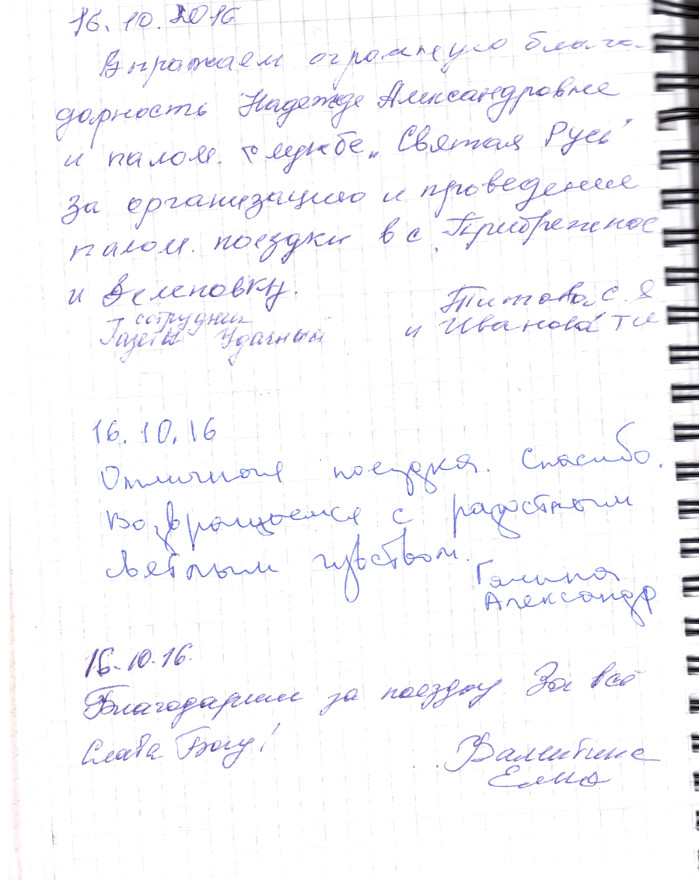 16.10.2016
Выражаем огромную благо-
дарность Надежде Александровне
и палом. службе „Святая Русь"
за организацию и проведение
палом. поездки в с. Прибрежное
и
Титова С. Я
сотрудник
Газеты Удачный и Иванова Т
16.10.16
Отличная поездка. Спасибо.
Возвращаемся с радостным
светлым чувством.
Галина
Александр
16.10.16.
Благодарим за поездку. За всё
Слава Богу!
Валентина